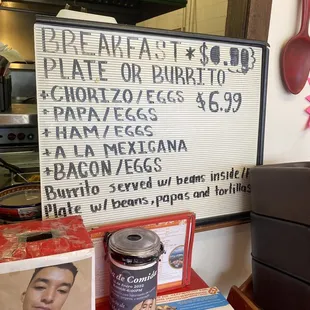 BREAKFAST *$
PLATE OR BURRITO
*CHORIZO/EGGS $6.99
*PAPA/EGGS
*HAM/EGGS
*A LA MEXICANA
*BACON/EGGS
Burrito served w/ beans inside
Plate w/ beans, papas and tortillas
de Comida